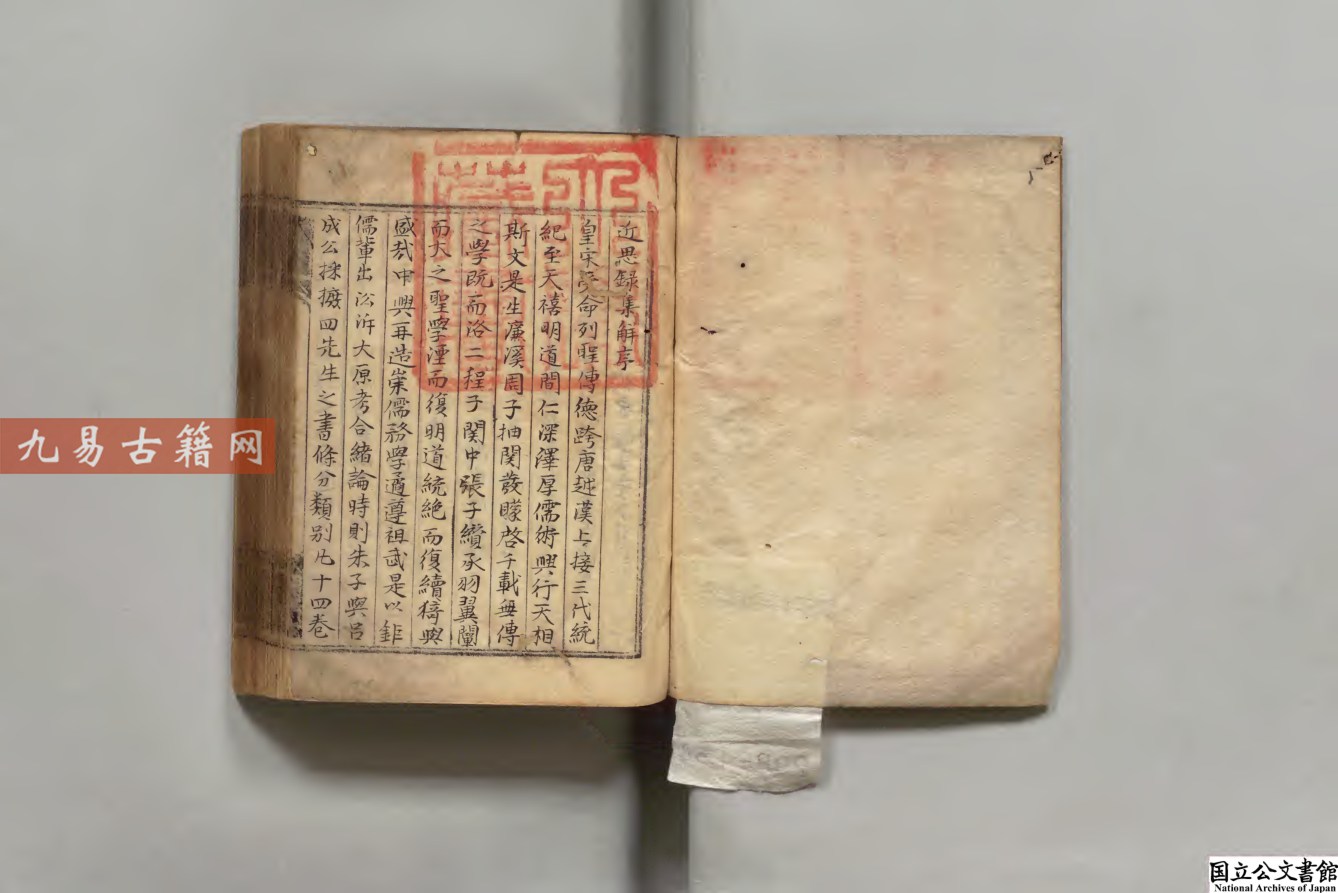 近思録集解序
皇宋受命列聖傳德跨唐越漢上接三代統
紀至天禧明道間仁深澤厚儒術興行天相
斯文是生濂溪周子抽関發矇啓千載無傳
之學既而洛二程子関中張子纘承羽翼闡
而大之聖學湮而復明道統絶而復續猗與
盛哉中興再造崇儒務學遹遵祖武是以鉅
儒輩出沿泝大原考合緒論時則朱子與呂
成公採摭四先生之書條分類别凡十四巻
九易古籍网
国立公文書館
National Archives of Japan